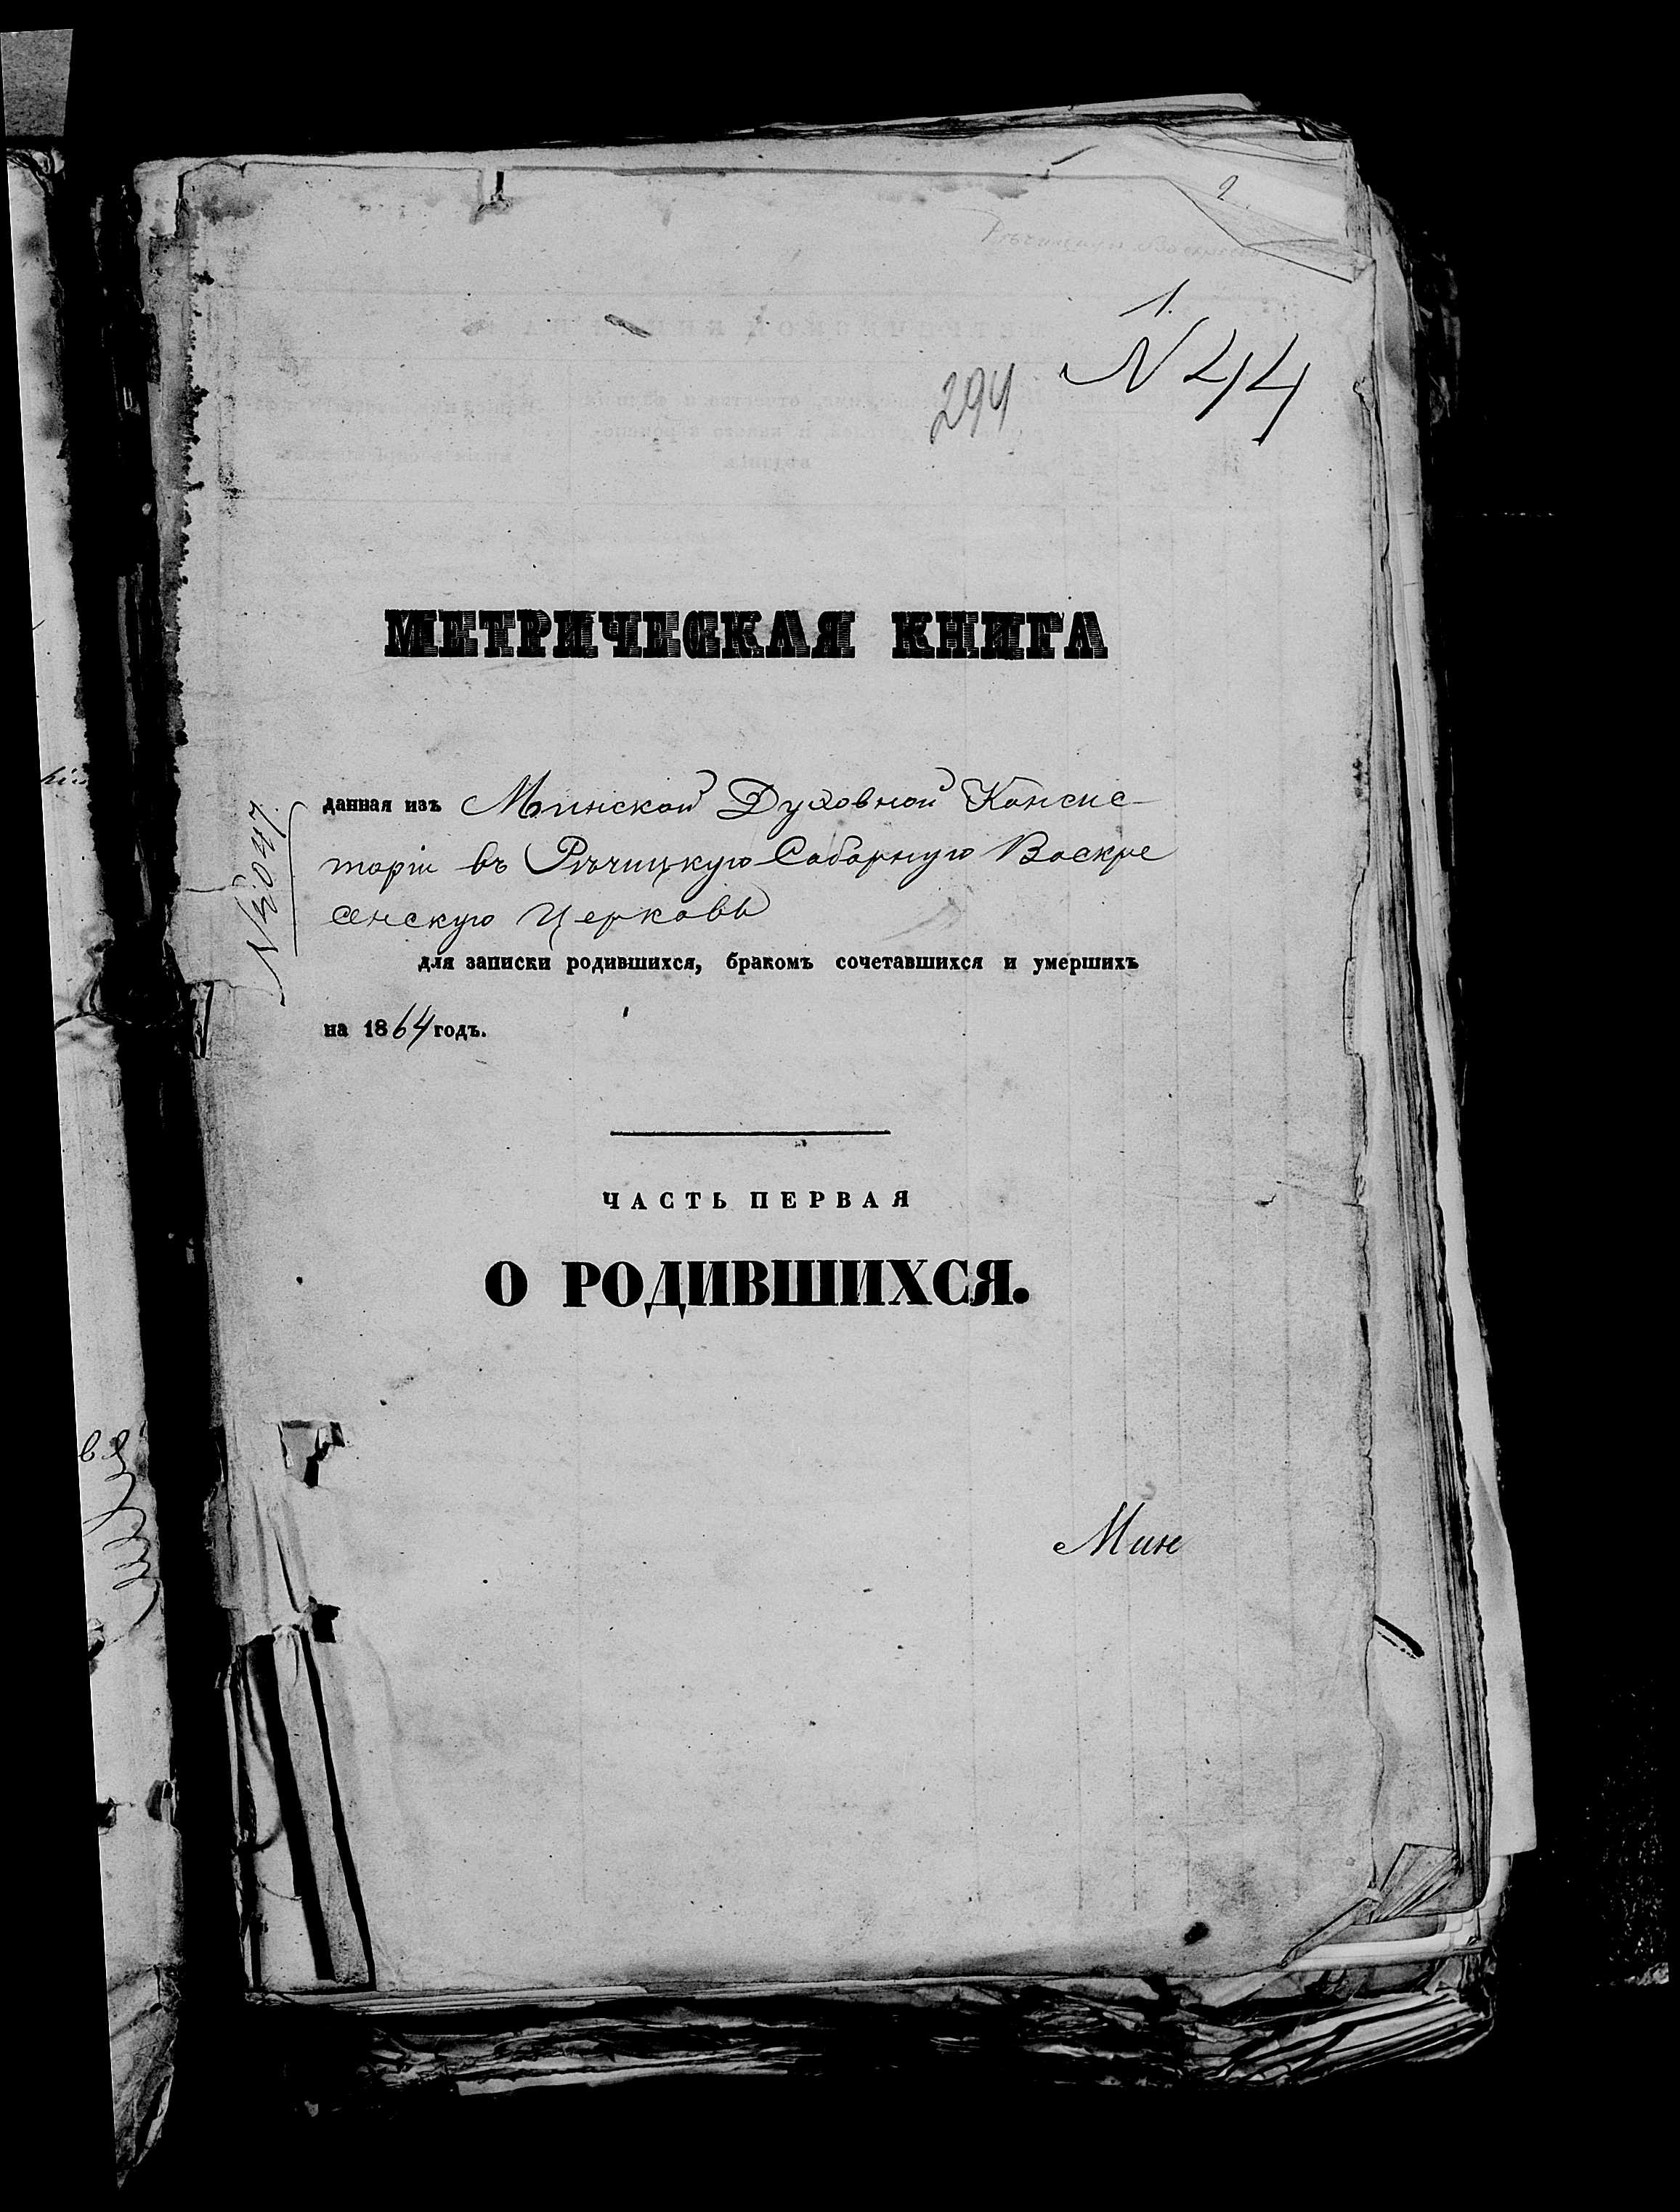 2
1.
N 44
294
МЕТРИЧЕСКАЯ КНИГА
данная изъ Минской Духовной Консис-
торіи въ Рѣчицкую Соборную Воскре
сенскую Церковь
для записки родившихся, бракомъ сочетавшихся и умершихъ
на 1864 годъ.
ЧАСТЬ ПЕРВАЯ
О РОДИВШИХСЯ.
Мин